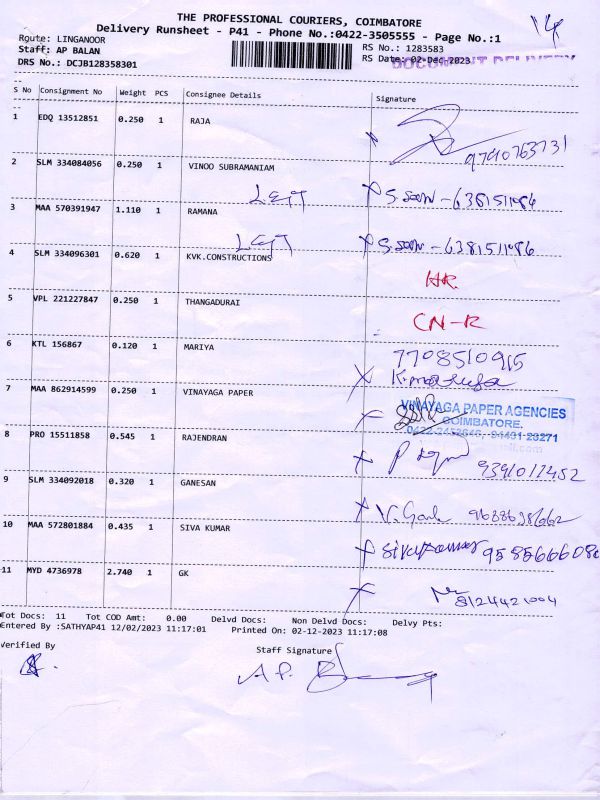 THE PROFESSIONAL COURIERS, COIMBATORE
Delivery Runsheet - P41 - Phone No.:0422-3505555 - Page No.:1
14
Route: LINGANOOR
RS No.: 1283583
Staff: AP BALAN
RS Date: 02-Dec-2023
DOCUMENT DELIVERY
DRS No.: DCJB128358301
S No Consignment No Weight PCS Consignee Details Signature
1 EDQ 13512851 0.250 1 RAJA
2 SLM 334084056 0.250 1 VINOO SUBRAMANIAM
3 MAA 570391947 1.110 1 RAMANA
4 SLM 334096301 0.620 1 KVK.CONSTRUCTIONS
HR.
5 VPL 221227847 0.250 1 THANGADURAI
CN-R
6 KTL 156867 0.120 1 MARIYA
7708510915
7 MAA 862914599 0.250 1 VINAYAGA PAPER
VINAYAGA PAPER AGENCIES
COIMBATORE.
8 PRO 15511858 0.545 1 RAJENDRAN
9 SLM 334092018 0.320 1 GANESAN
10 MAA 572801884 0.435 1 SIVA KUMAR
Sivakumar
11 MYD 4736978 2.740 1 GK
8124421004
Tot Docs: 11 Tot COD Amt: 0.00 Delvd Docs: Non Delvd Docs: Delvy Pts:
Entered By :SATHYAP41 12/02/2023 11:17:01 Printed On: 02-12-2023 11:17:08
Verified By
Staff Signature